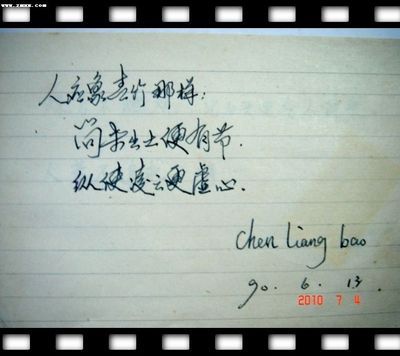 www.zmxm.com
人应象青竹那样：
尚未出土便有节.
纵使凌云更虚心.
chen liang bao
90. 6. 13.
2010 7 4